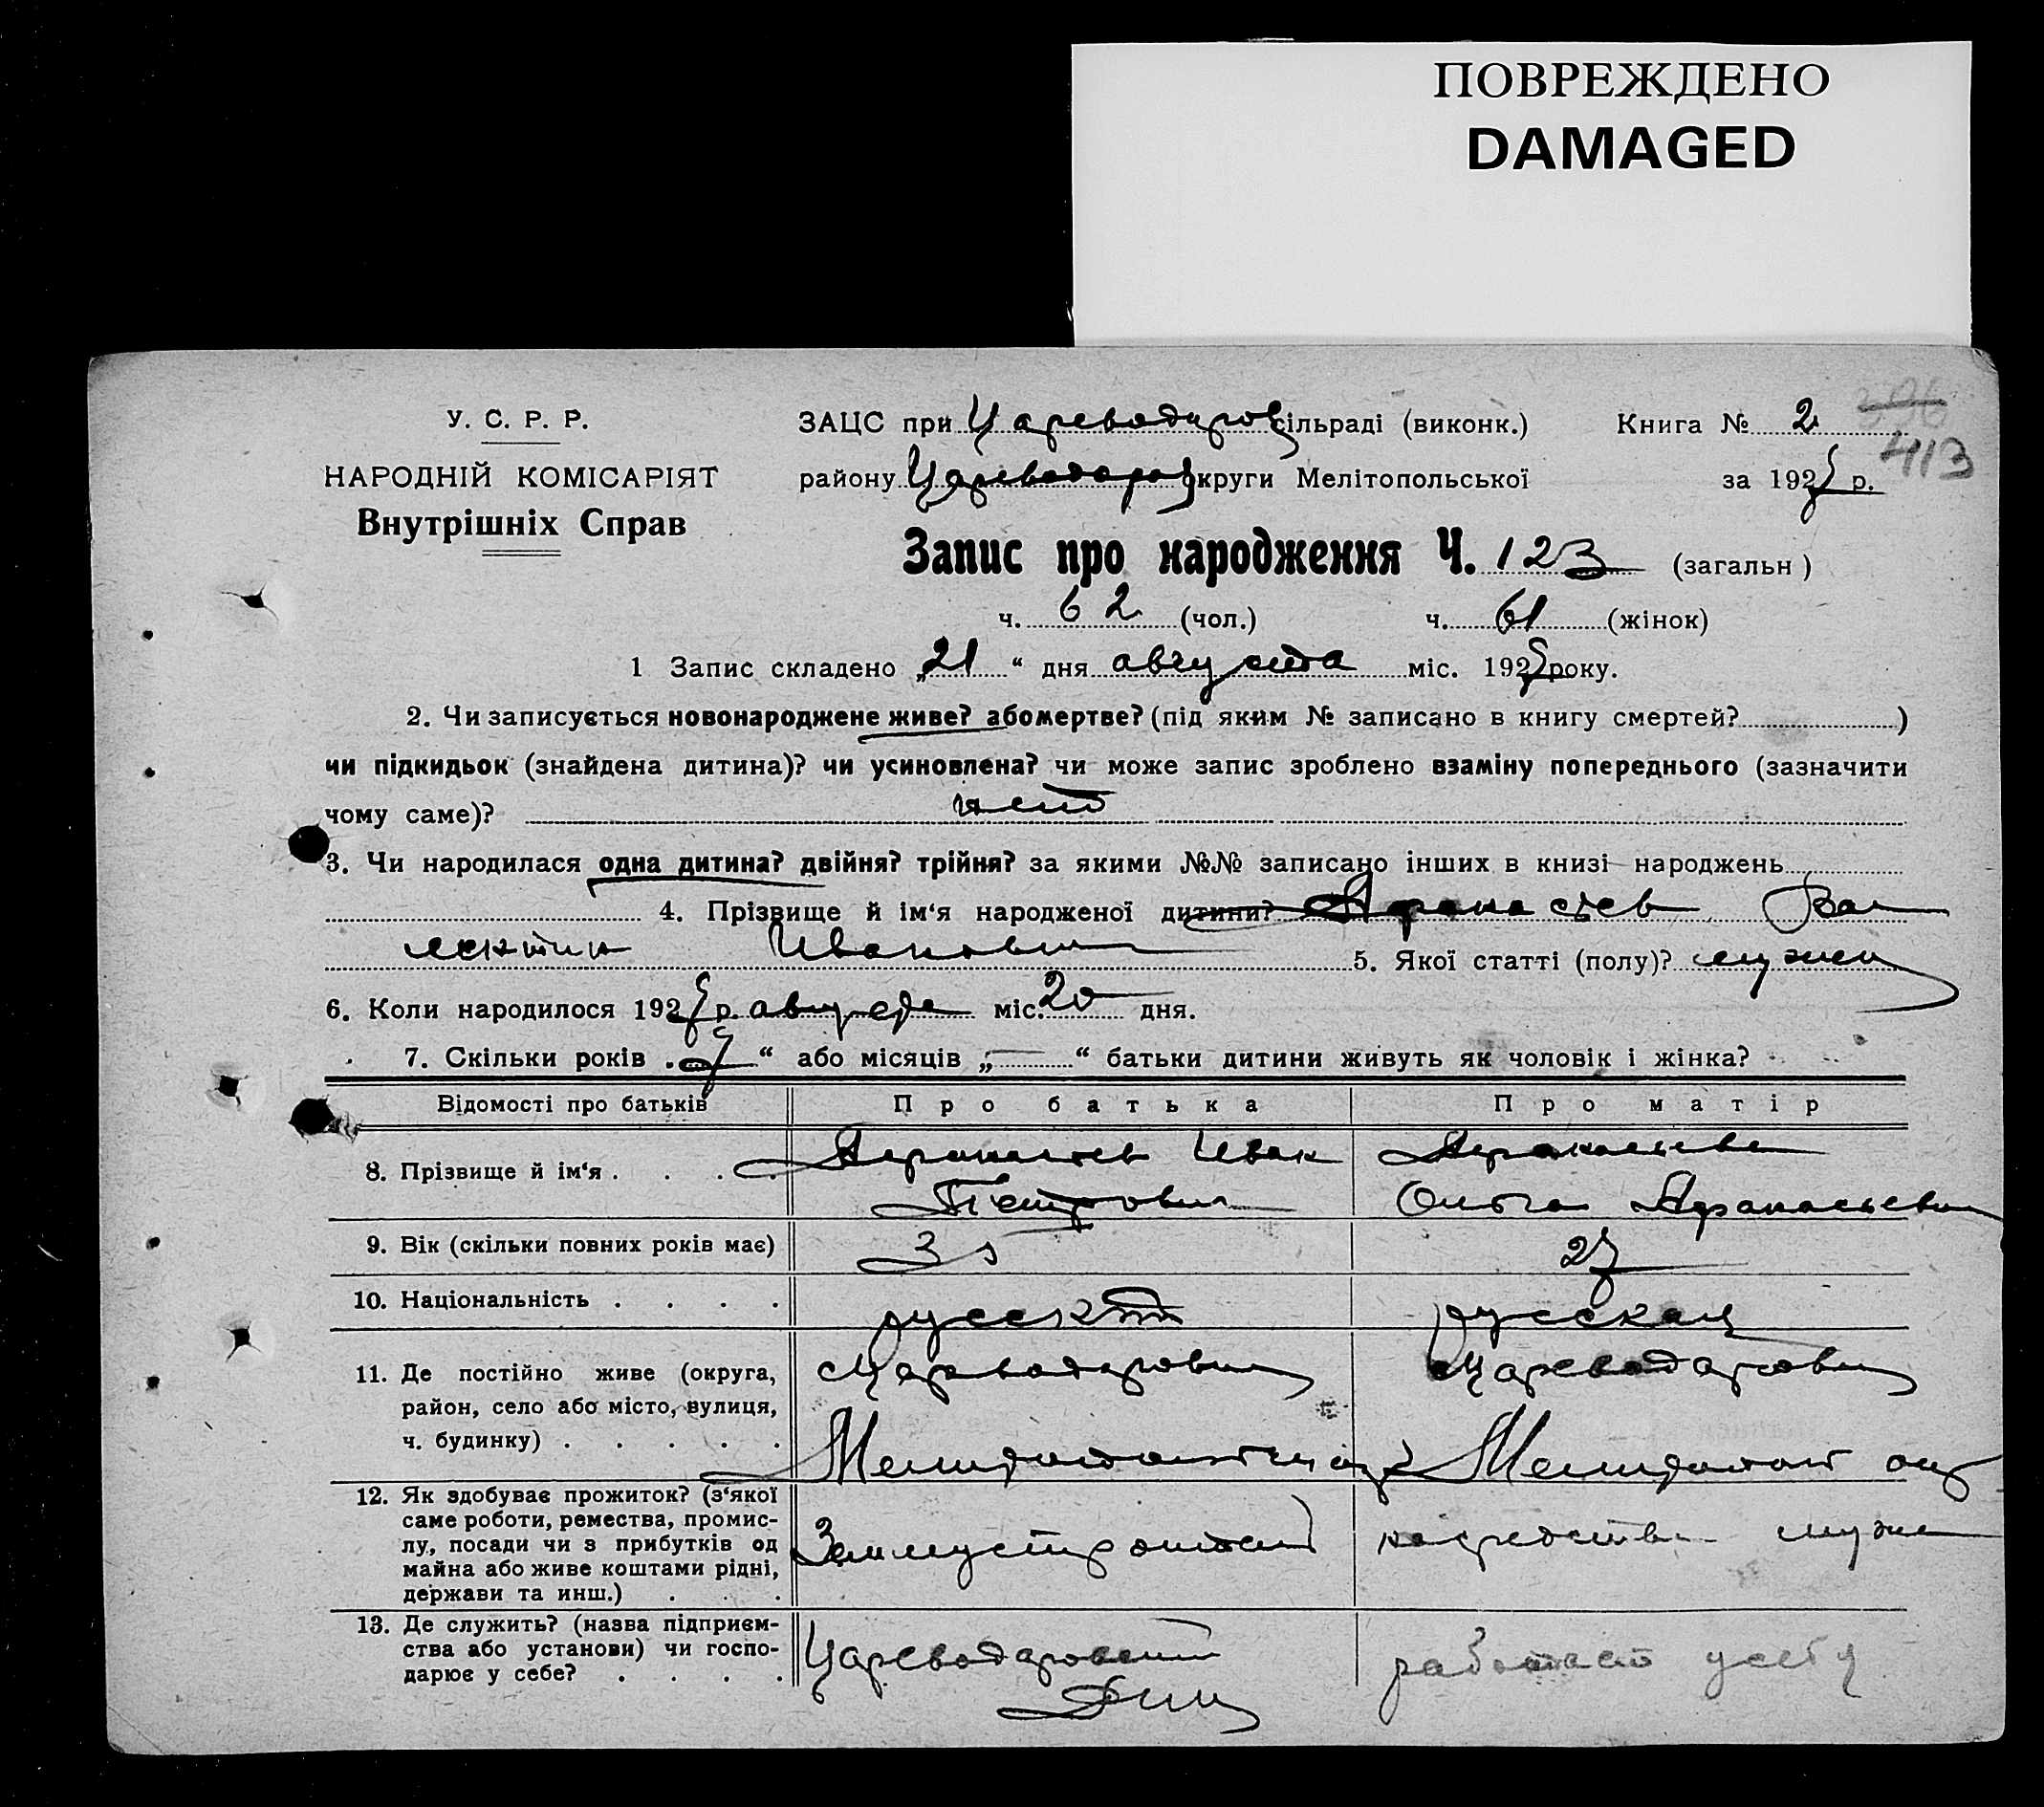 ПОВРЕЖДЕНО
DAMAGED
У. С. Р. Р.
НАРОДНІЙ КОМІСАРІЯТ
Внутрішніх Справ
ЗАЦС при Цареводаров сільраді (виконк.)
району Цареводаров округи Мелітопольської
Книга № 2
396
413
за 192 р.
Запис про народження Ч. 123 (загальн)
ч. 62 (чол.) ч. 61 (жінок)
1 Запис складено „21“ дня августа міс. 192 року.
2. Чи записується новонароджене живе? або мертве? (під яким № записано в книгу смертей? )
чи підкидьок (знайдена дитина)? чи усиновлена? чи може запис зроблено взаміну попереднього (зазначити
чому саме)? нет
3. Чи народилася одна дитина? двійня? трійня? за якими №№ записано інших в книзі народжень
4. Прізвище й ім‘я народженої дитини? Афанасьев Вал
ентин Иванович 5. Якої статті (полу)? мужск
6. Коли народилося 192 р. августа міс. 20 дня.
7. Скільки років „ “ або місяців „—“ батьки дитини живуть як чоловік і жінка?
Відомості про батьків Про батька Про матір
8. Прізвище й ім‘я . . . . Афанасьев Иван Афанасьева
Петрович Ольга Афанасьевна
9. Вік (скільки повних років має) 27
10. Національність . . . . русский русская
11. Де постійно живе (округа, Цареводаровка Цареводаровка
район, село або місто, вулиця,
ч. будинку) . . . . . Мелитоп окр Мелитопол окр
12. Як здобуває прожиток? (з‘якої
саме роботи, ремества, промис-
лу, посади чи з прибутків од Землеустроитель на средства мужа
майна або живе коштами рідні,
держави та инш.) . . .
13. Де служить? (назва підприєм-
ства або установи) чи госпо- Цареводаровский работает у себя
дарює у себе? . . . .